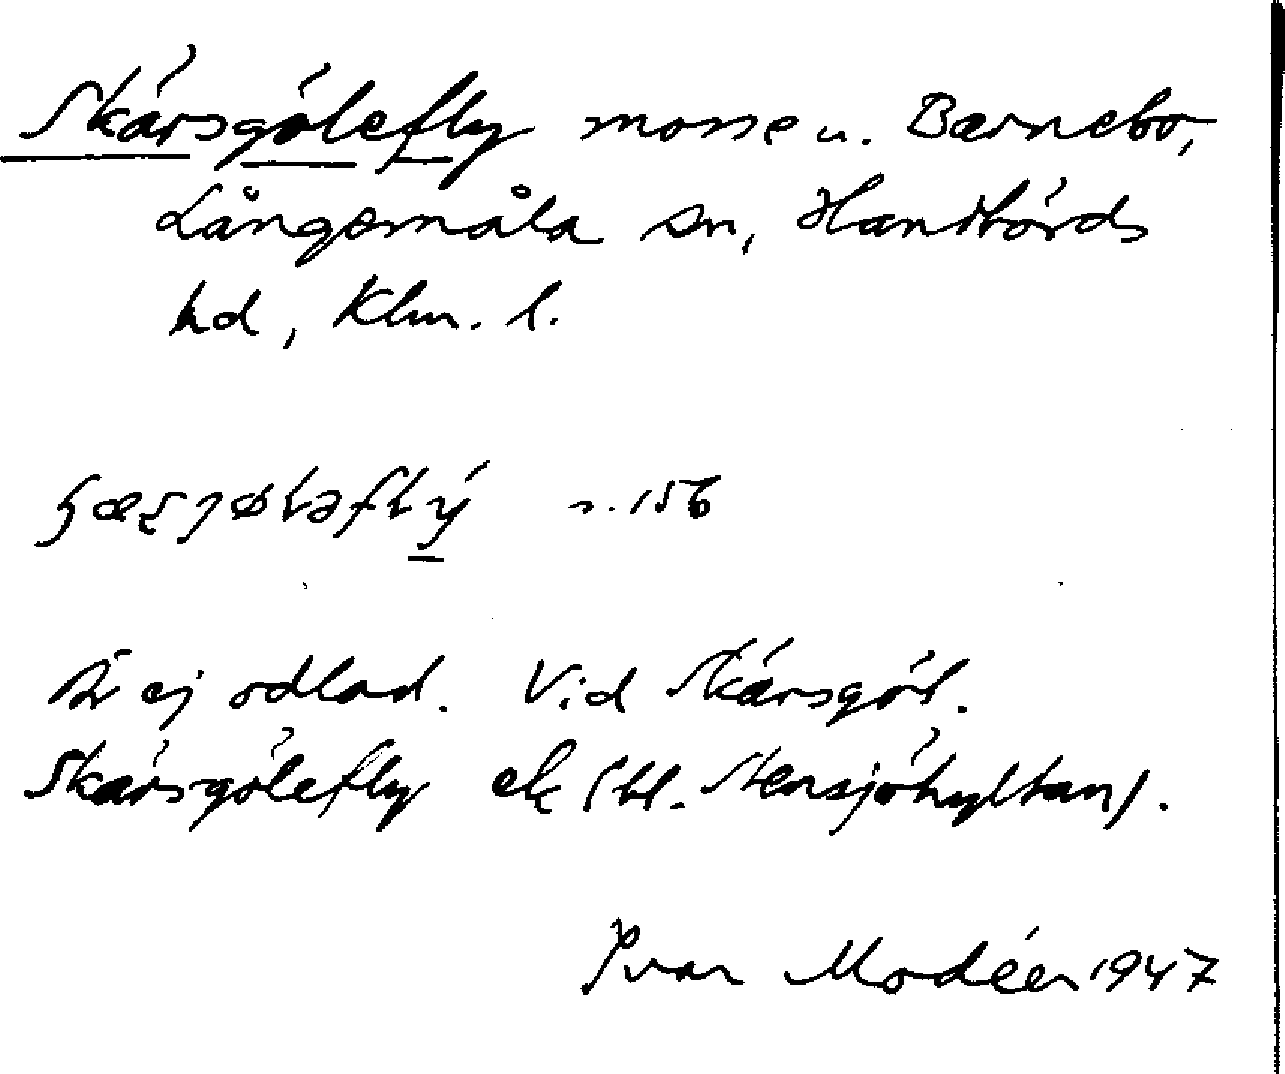 Skärsgölefly mosse u. Barnebo,
Långemåla sn, Handbörds
hd, Klm. l.
s. 156
Är ej odlad. Vid Skärsgöl.
Skärsgölefly ek (bl. Stensjöhyltan).
Ivar Modéer 1947